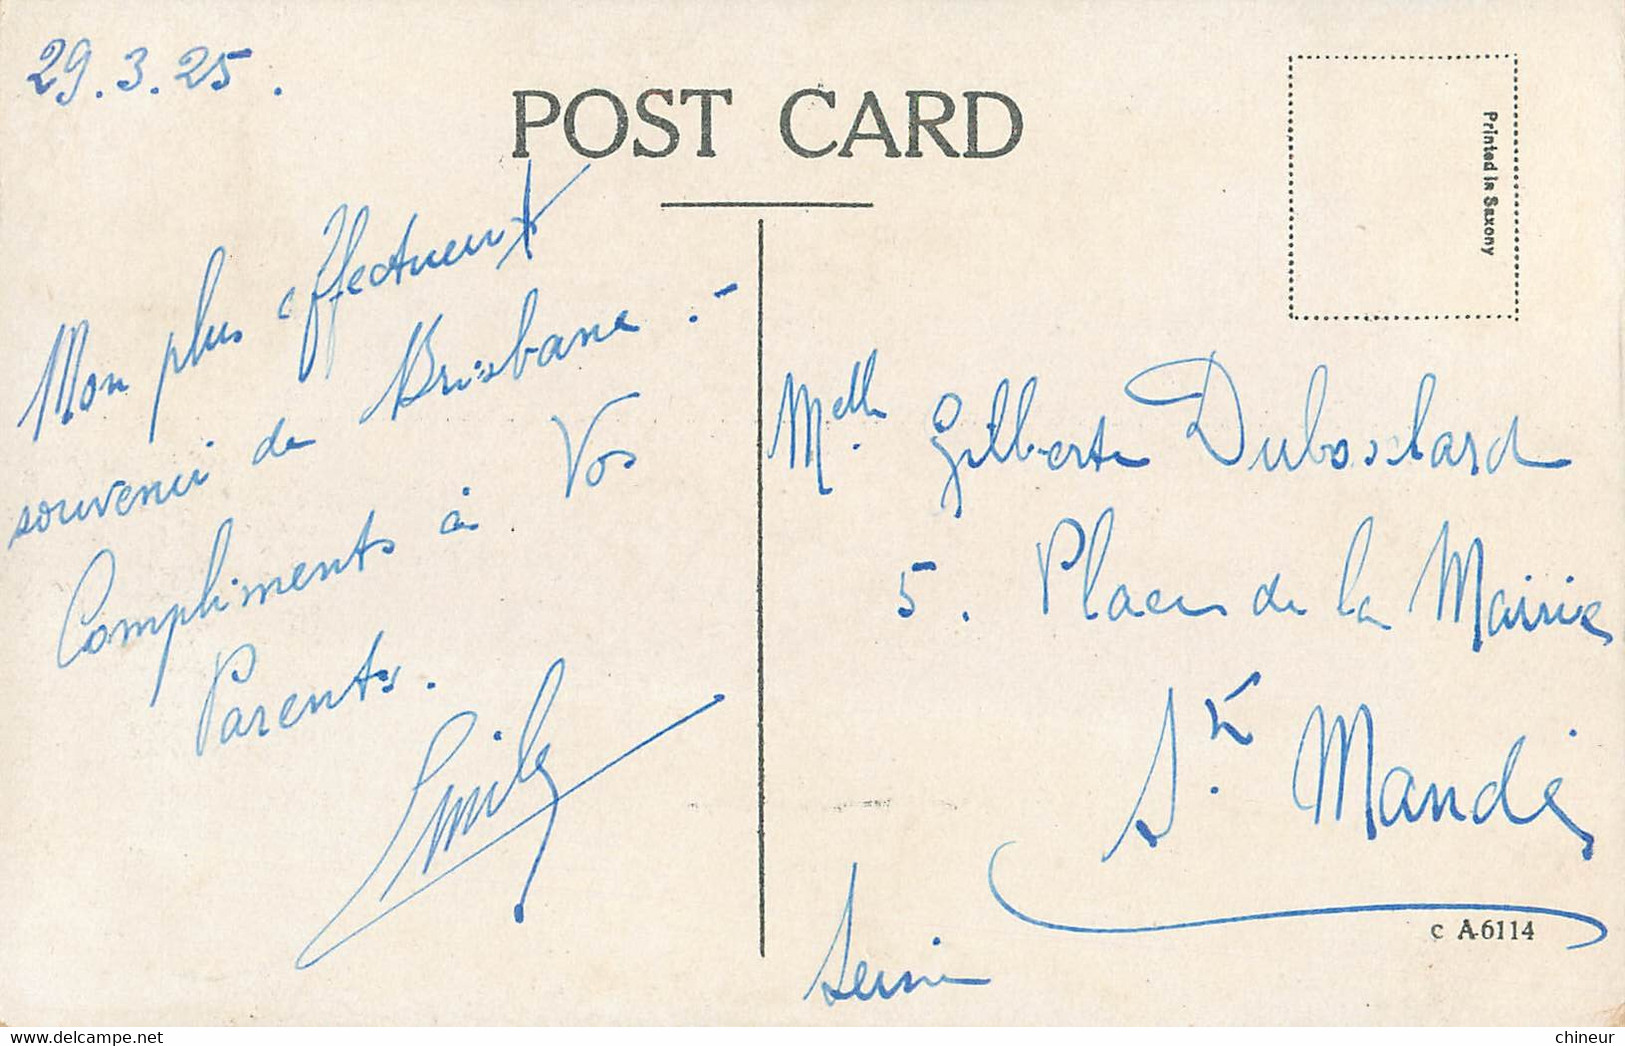 29.3.25.
POST CARD
Printed in Saxony
Mon plus affectueux
souvenir de Brisbane.-
Compliments à Vos
Parents.
Emile
Melle Gilberte Duboschard
5. Place de la Mairie
St. Mandé
Seine
C A-6114
chineur